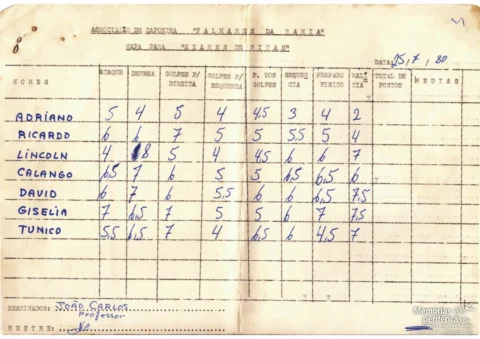 ASSOCIACAO DE CAPOEIRA "PALMARES DA BAHIA"
MAPA PARA "EXAMES DE FITAS"
DATA: 25, 7, 80
NOMES ATAQUE DEFESA GOLPES P/ DIREITA GOLPES P/ ESQUERDA P. DOS GOLPES SEQUEN CIA PREPARO FISICO MALÍ CIA TOTAL DE PONTOS MEDIAS
ADRIANO 5 4 5 4 4,5 3 4 2
RICARDO 6 6 7 5 5 5,5 5 4
LINCOLN 4 8 5 4 4,5 6 6 7
CALANGO 6,5 7 6 5 5 6,5 6,5 6
DAVID 6 7 6 5,5 6 6 6,5 7,5
GISELIA 7 6,5 7 5 5 6 7 7,5
TUNICO 5,5 6,5 7 4 6,5 6 4,5 7
EXAMINADOR: JOÃO CARLOS
Professor
MESTRE:
Memorias periféricas